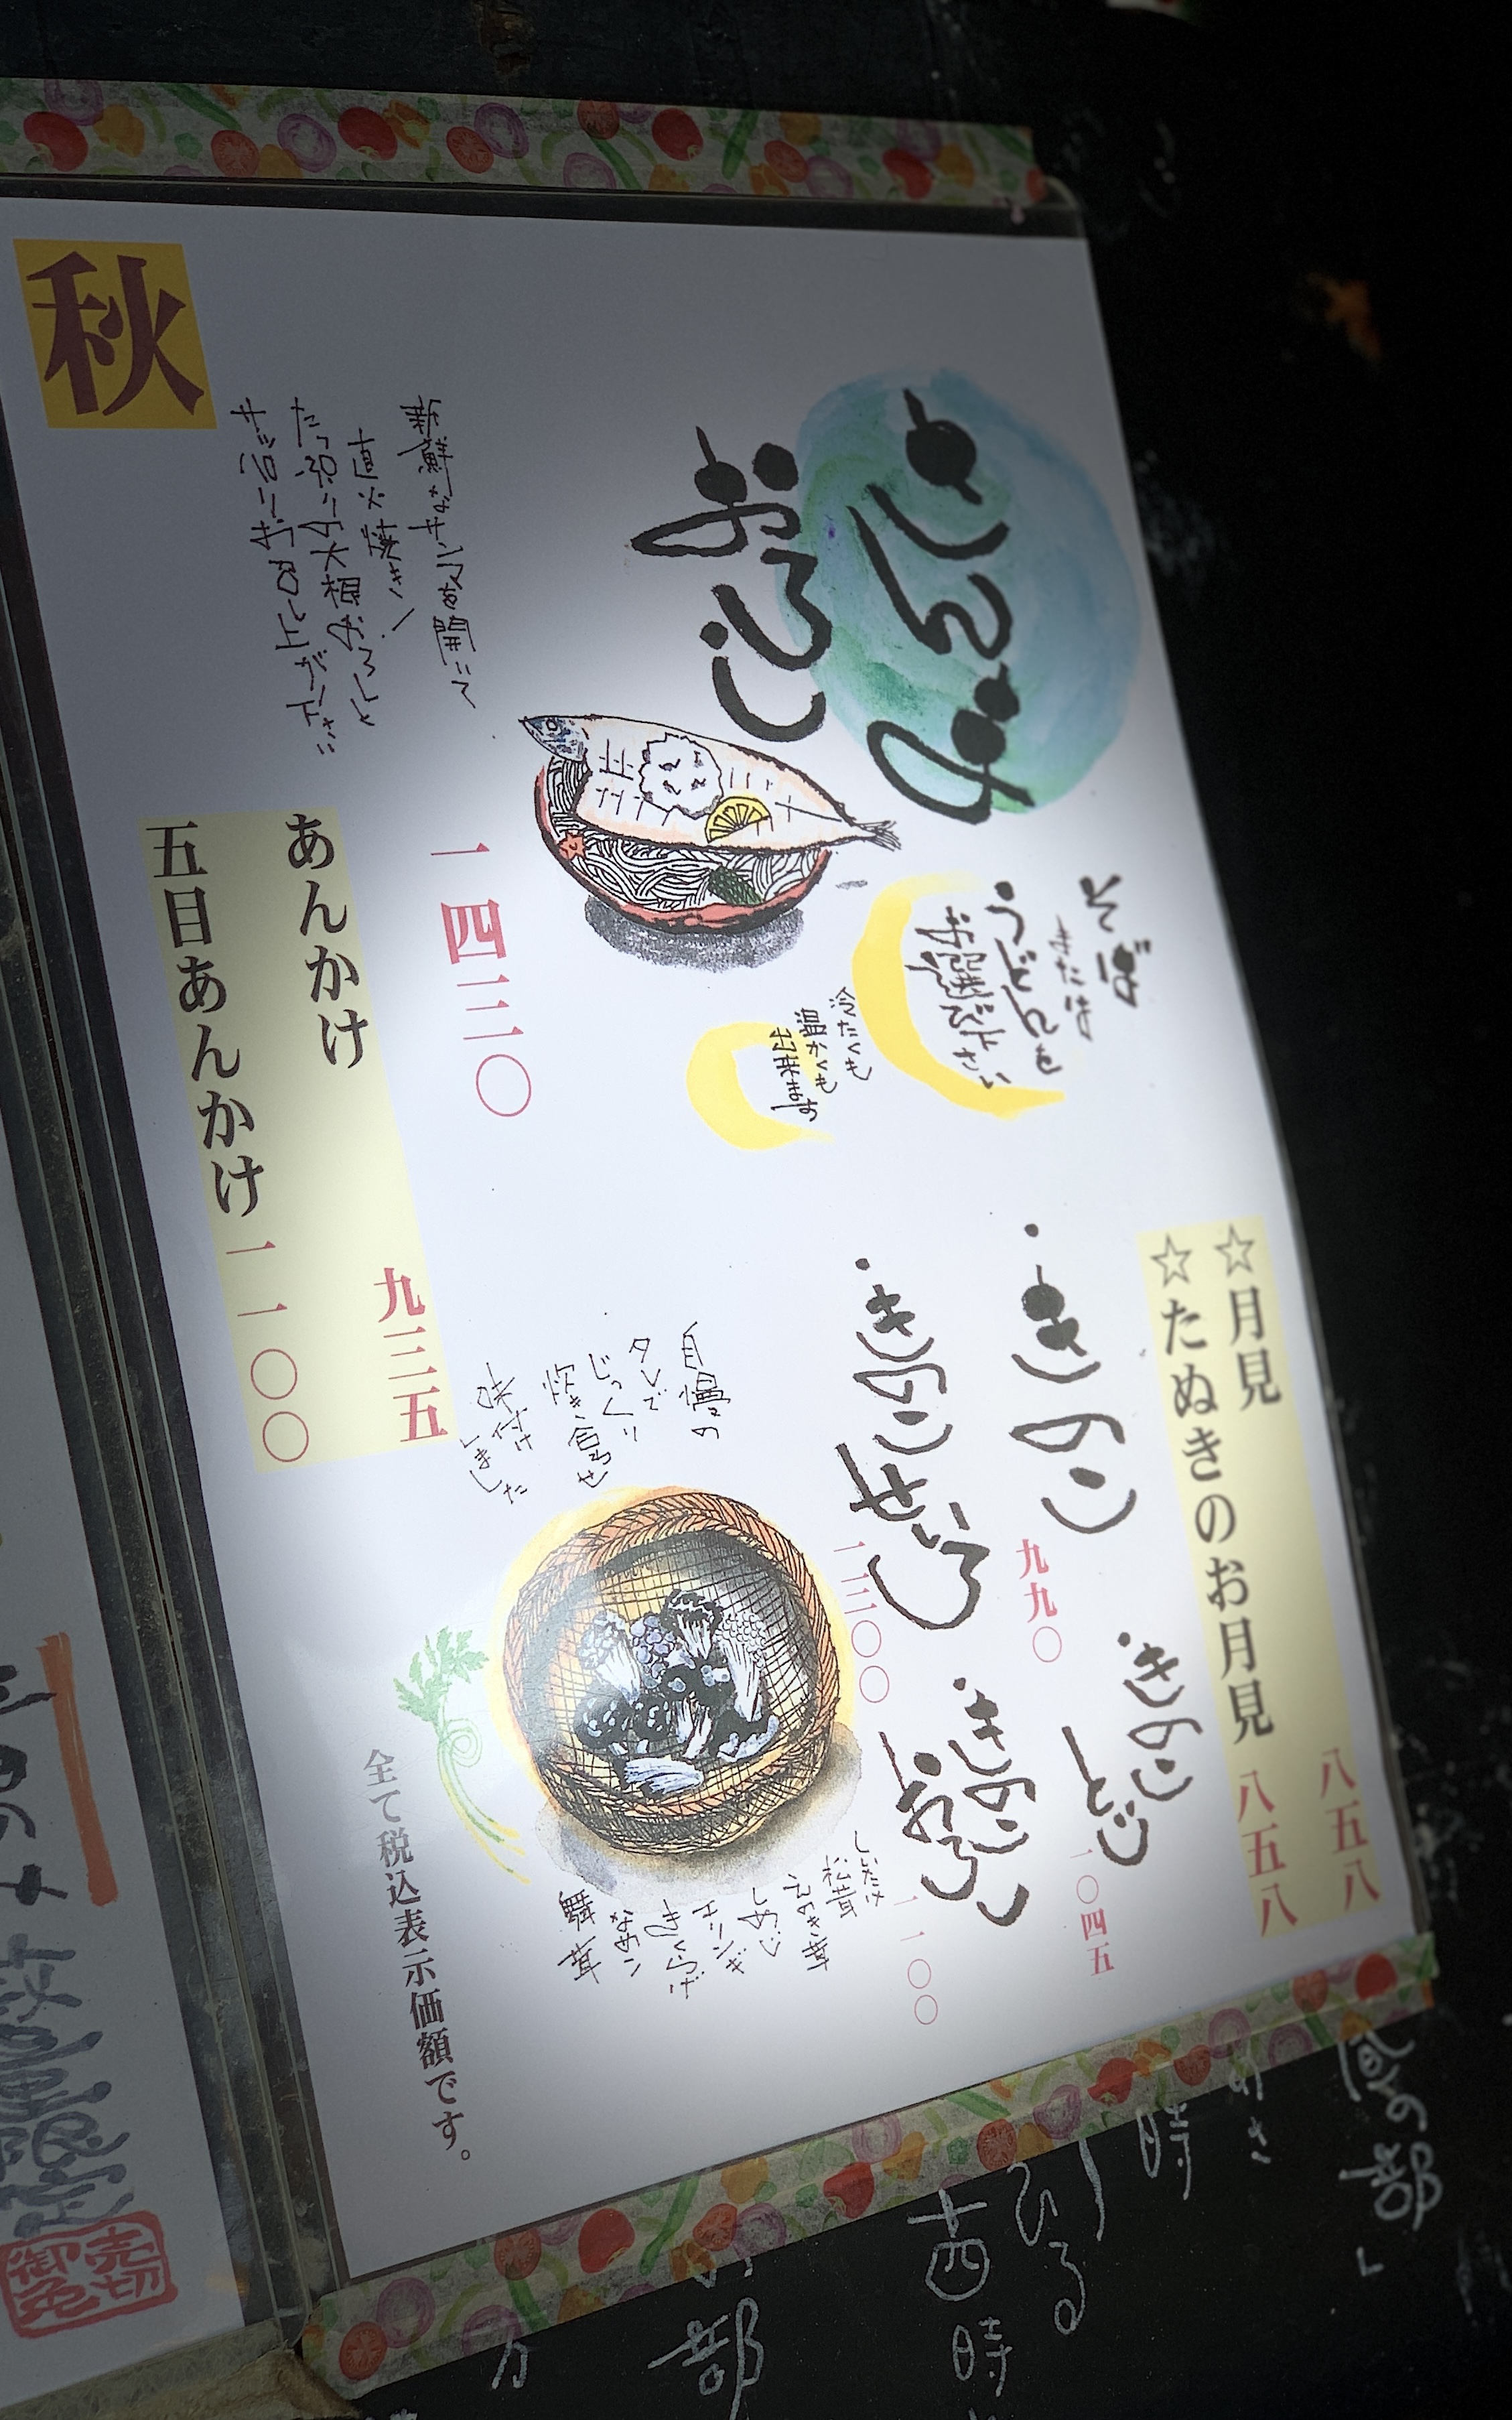 ☆月見 八五八
☆たぬきのお月見 八五八
・きのこ 九九〇
・きのことじ 一〇四五
・きのこせいろ 一三〇〇
・きのこおろし 一一〇〇
しいたけ
松茸
えのき茸
しめじ
エリンギ
きくらげ
なめこ
舞茸
自慢の
タレで
じっくり
炊き合せ
味付け
しました
そば
または
うどんを
お選び下さい
冷たくも
温かくも
出来ます
さんま
おろし
一四三〇
新鮮なサンマを開いて
直火焼き!
たっぷりの大根おろしと
サッパリお召し上がり下さい
あんかけ 九三五
五目あんかけ 一一〇〇
秋
全て税込表示価額です。
売切
御免
昼の部
時
ひる
十四時
部